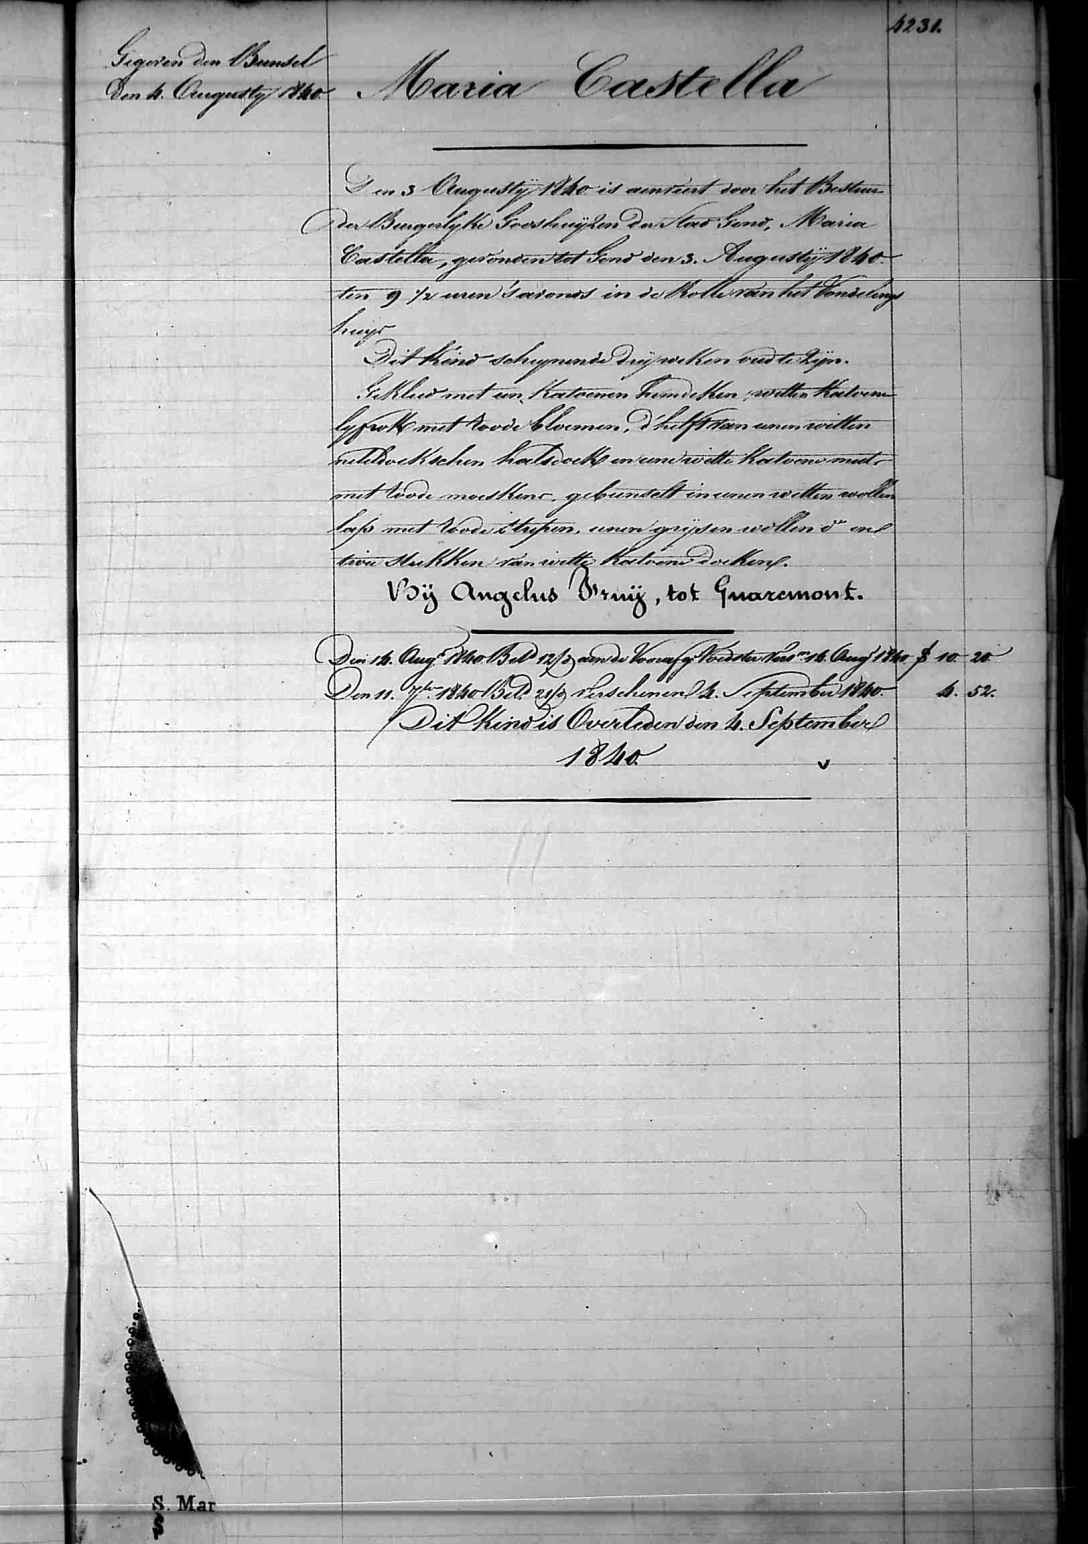 4231.
Gegeven den Bunsel
den 4. Augusty 1840
Maria Castella
Den 3 Augustÿ 1840 is aenveert door het Bestuur
der Burgerlyke Godshuijzen der Stad Gend, Maria
Castella, gevonden tot Gend den 3. Augustÿ 1840
ten 9 1/2 uren 's avonds in de Rolle van het Vondelings
huijs
Dit kind schynende drÿ weken oud te zÿn.
Gekleed met een Katoenen hemdeken, witten Katoenen
lyfrok met roode bloemen, d'helft van eenen witten
neteldoekschen halsdoek en eene witte katoene muts
met roode moeskens, gebunselt in eenen witten wollen
lap met roode strepen, eenen grijsen wollen do en
twee stukken van witte katoene doeken.
Bÿ Angelus Pruÿ, tot Quaremont.
Den 14. Augt 1840 Betd 12/3 aen de Voorafge Voedster Versn 14. Augt 1840 f 10 20
Den 11. 7ber 1840 Betd. 21/3 verschenen 4. September 1840. 4. 52.
Dit Kind is Overleden den 4. September
1840. v
S. Mar